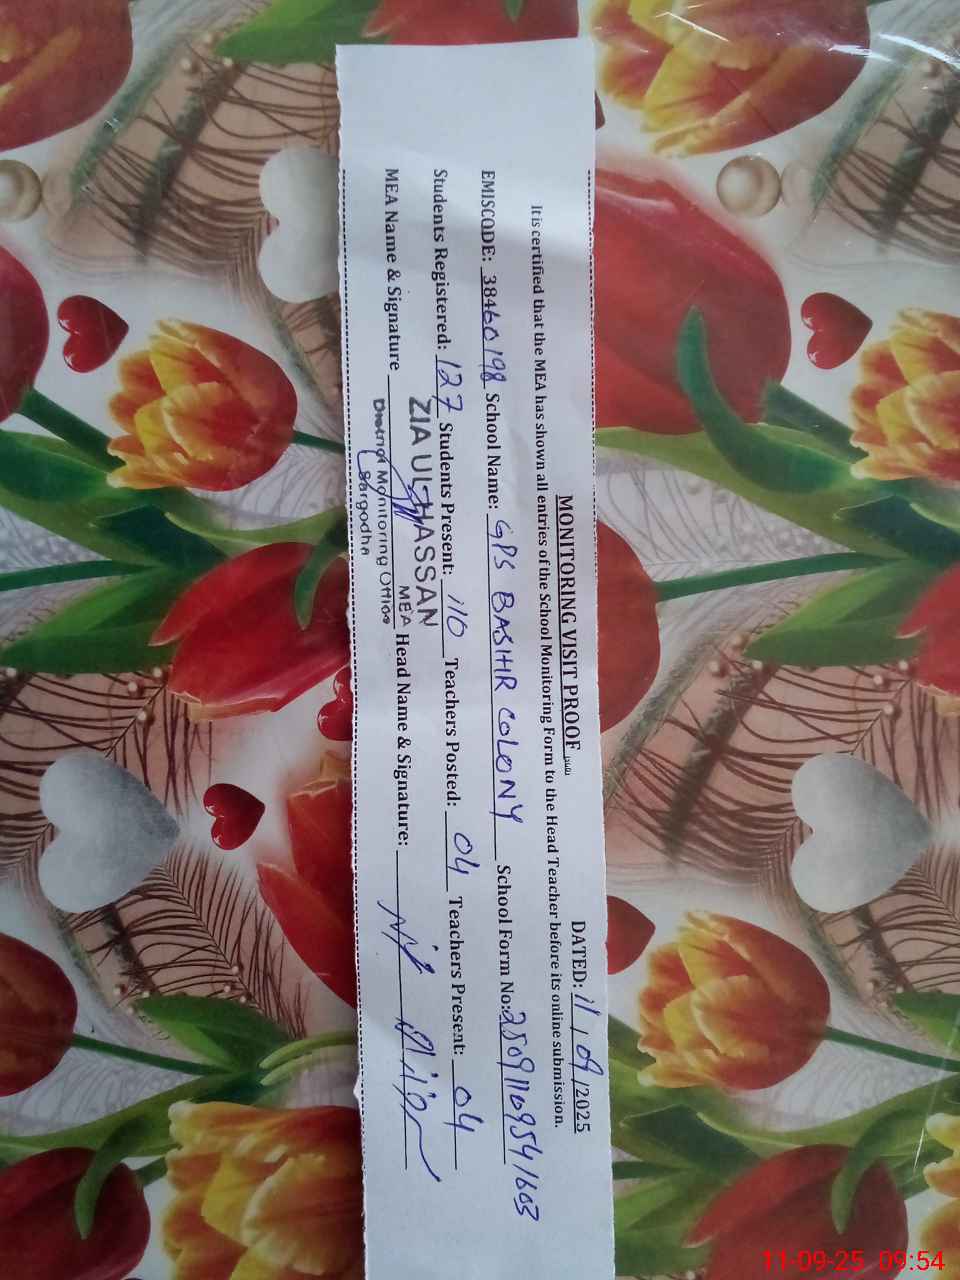 MONITORING VISIT PROOF
DATED: 11/09/2025
It is certified that the MEA has shown all entries of the School Monitoring Form to the Head Teacher before its online submission.
EMISCODE: 38460198 School Name: GPS BASHIR COLONY School Form No: 25091109541603
Students Registered: 127 Students Present: 110 Teachers Posted: 04 Teachers Present: 04
MEA Name & Signature Head Name & Signature:
ZIA UL HASSAN
MEA
District Monitoring Office
Sargodha
11-09-25 09:54